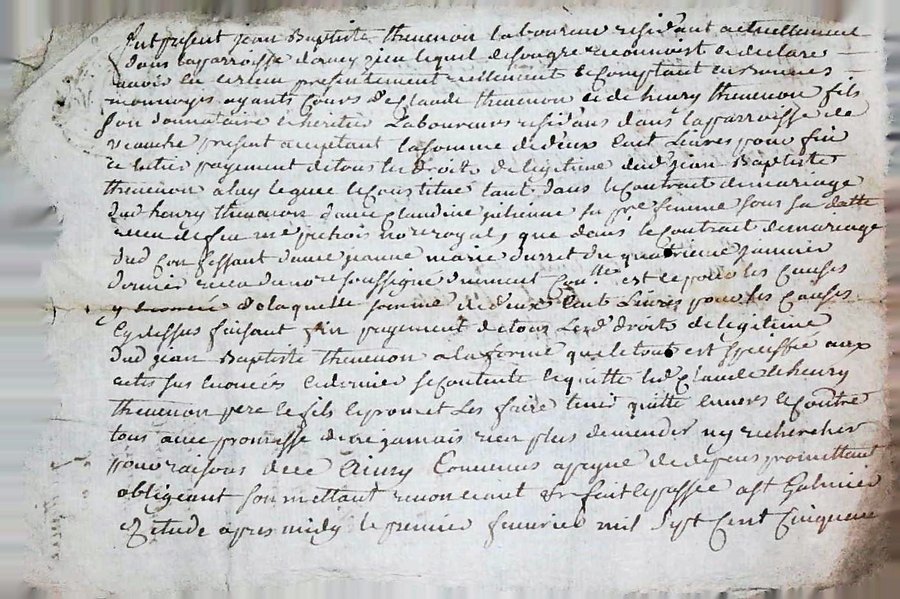 fut present jean Baptiste thevenon laboureur residant actuellement
dans la parroisse lequel de son gre reconnoist et declare
avoir eu et receu presentement reellement et comptant en bonnes
monnoyes ayants cours de Claude thevenon et de henry thevenon fils
son donnataire et heritier Laboureurs residans dans la parroisse de
veauche present acceptant la somme de deux cent Livres pour fin
et entier payement de tous les droits de legitime dud jean Baptiste
thevenon a luy leguee et constitue tant dans le contrat de mariage
dud henry thevenon avec Claudine sa femme sous sa datte
receu de feu me nore royal, que dans le contrat de mariage
dud confessant avec jeanne marie durret du quatrieme janvier
dernier receu du nore soussigné duement est ce pour les causes
y enoncée de laquelle somme de deux Cent Livres pour les causes
cy dessus faisant fin payement de tous Les droits de legitime
dud jean Baptiste thevenon a la forme que le tout est specifié aux
actes sus enoncés le dernier se contente et quitte led Claude et henry
thevenon pere et fils et promet Les faire tenir quitte envers et contre
tous avec promesse de ne jamais rien plus demander ny rechercher
pour raisons de ce Ainsy Convenus a peyne de depens promettant
obligeant soumettant renonceant &c fait et passée a st Galmier
Etude apres midy le premier fevrier mil sept Cent Cinquante